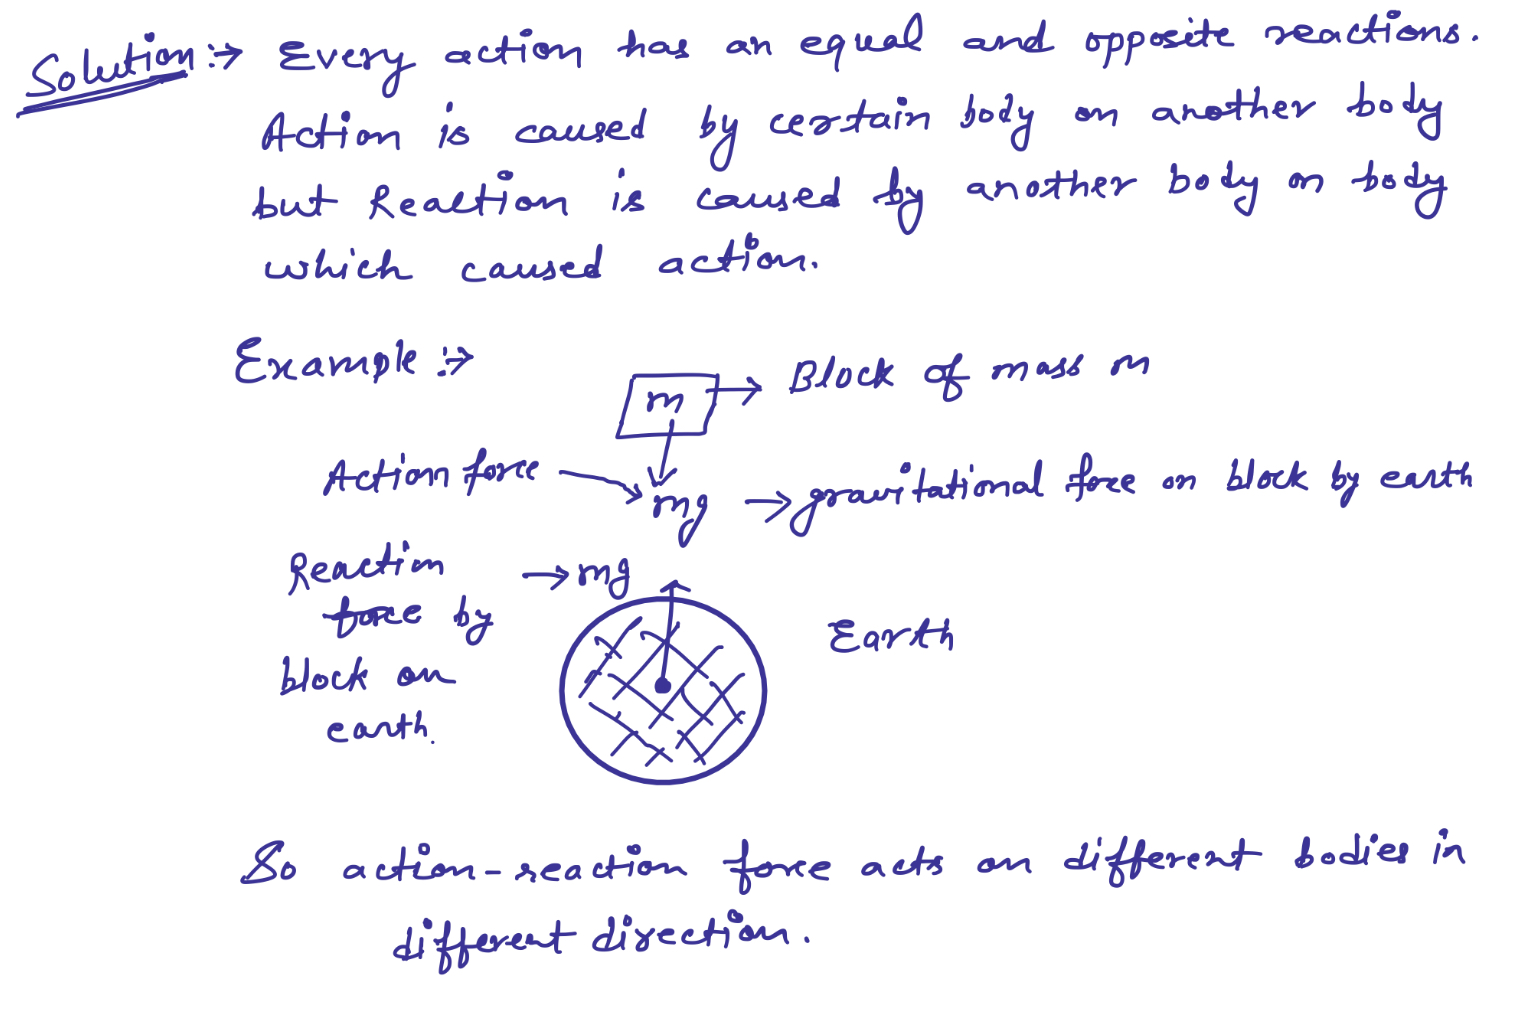 Solution :→ Every action has an equal and opposite reactions.
Action is caused by certain body on another body
but Reaction is caused by another body on body
which caused action.
Example :→
m → Block of mass m
Action force → mg → gravitational force on block by earth
Reaction → mg
force by
block on
earth.
Earth
So action-reaction force acts on different bodies in
different direction.